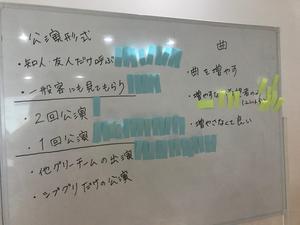 公演形式
・知人・友人だけ呼ぶ
・一般客にも見てもらう
・2回公演
・1回公演
・他グリーチームの出演
・シブグリだけの公演
曲
・曲を増やす
・増やす
・増やさなくて良い